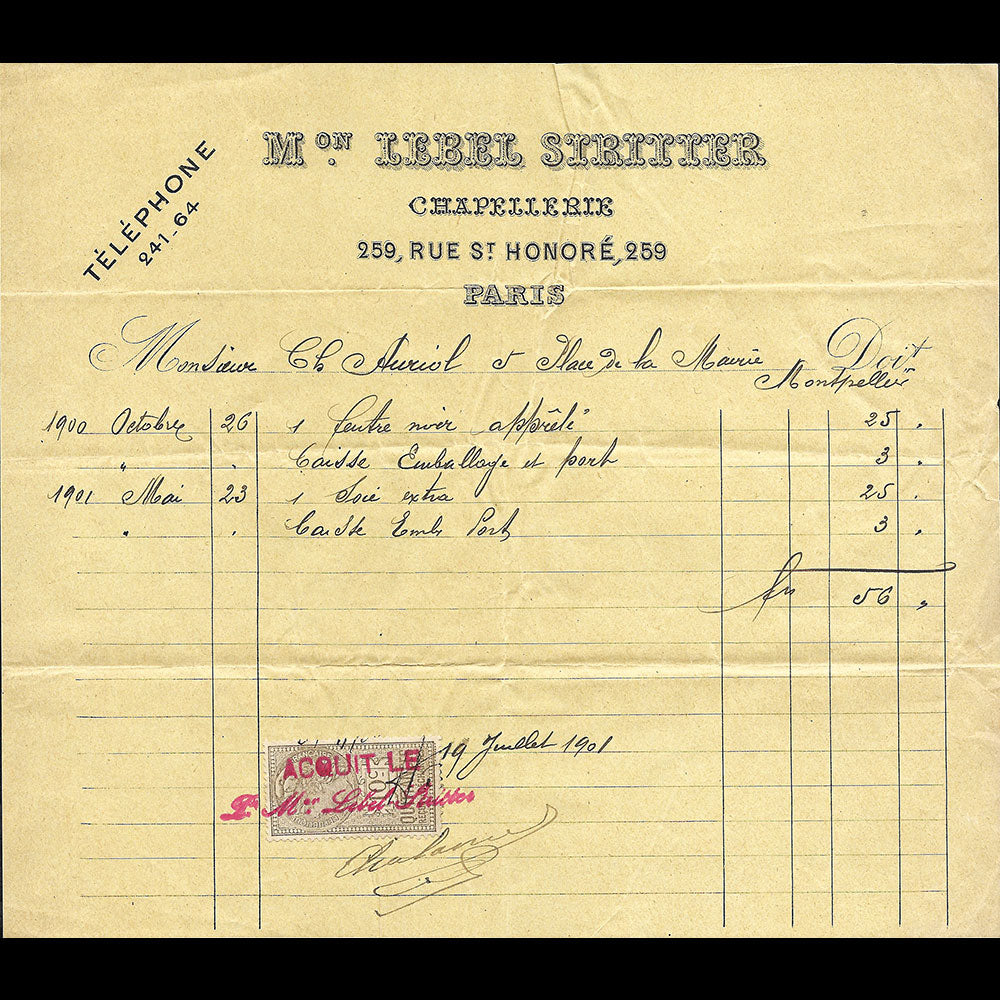 TÉLÉPHONE
241-64
Mon. LEBEL STRITTER
CHAPELLERIE
259, RUE ST HONORÉ, 259
PARIS
Monsieur Ch Auriol 5 Place de la Mairie Doit
Montpellier
1900 Octobre 26 1 feutre noir apprêté 25 "
" " Caisse Emballage et port 3 "
1901 Mai 23 1 Soie extra 25 "
" " Caisse Emb Port 3 "
frs 56 "
19 Juillet 1901
ACQUIT LE
Pr Mon Lebel Stritter